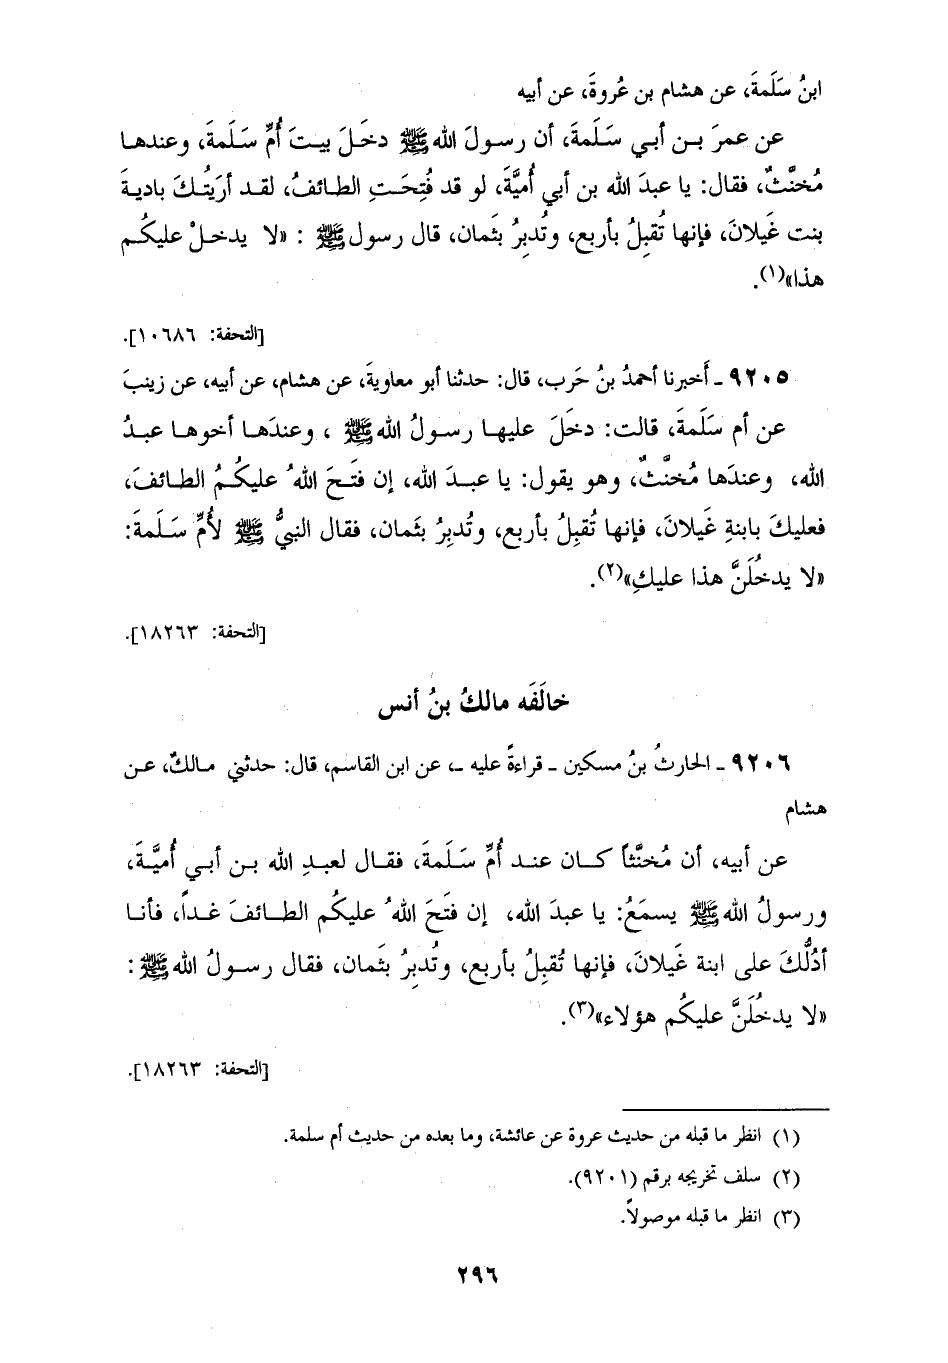 ابنُ سَلَمةَ، عن هشام بن عُروةَ، عن أبيه
عن عمرَ بـن أبـي سَـلَمةَ، أن رسـولَ الله ﷺ دخَـلَ بيـتَ أُمِّ سَـلَمةَ، وعندهـا
مُخنَّثٌ، فقال: يا عبدَ الله بن أبي أُميَّةَ، لو قد فُتِحَتِ الطـائفُ، لقـد أرَيتُـكَ باديـةَ
بنـت غَيلانَ، فإنها تُقبِلُ بأربع، وتُدبِرُ بثَمان، قال رسول ﷺ : «لا يدخـلْ عليكـم
هذا»(١).
[التحفة: ١٠٦٨٦].
٩٢٠٥ ـ أَخبرنا أحمدُ بنُ حَرب، قال: حدثنا أبو معاويةَ، عن هشام، عن أبيه، عن زينبَ
عن أم سَلَمةَ، قالت: دخَلَ عليهـا رسـولُ الله ﷺ ، وعندَهـا أخوهـا عبـدُ
الله، وعندَها مُخنَّثٌ، وهو يقول: يا عبـدَ الله، إن فتَـحَ اللهُ عليكُـمُ الطـائفَ،
فعليكَ بابنةِ غَيلانَ، فإنها تُقبِلُ بأربع، وتُدبِرُ بثَمان، فقال النبيُّ ﷺ لأُمِّ سَـلَمةَ:
«لا يدخُلَنَّ هذا عليكِ»(٢).
[التحفة: ١٨٢٦٣].
خالَفَه مالكُ بنُ أنس
٩٢٠٦ ـ الحارثُ بنُ مسكين ـ قراءةً عليه ـ، عن ابن القاسم، قال: حدثني مـالكٌ، عـن
هشام
عن أبيه، أن مُخنَّثاً كـان عنـد أُمِّ سَـلَمةَ، فقـال لعبـدِ الله بـن أبـي أُميَّـةَ،
ورسولُ الله ﷺ يسمَعُ: يا عبدَ الله، إن فتَحَ اللهُ عليكُم الطـائفَ غـداً، فأنـا
أدُلُّكَ على ابنة غَيلانَ، فإنها تُقبِلُ بأربع، وتُدبِرُ بثَمان، فقال رسـولُ الله ﷺ :
«لا يدخُلَنَّ عليكُم هؤلاء»(٣).
[التحفة: ١٨٢٦٣].
(١) انظر ما قبله من حديث عروة عن عائشة، وما بعده من حديث أم سلمة.
(٢) سلف تخريجه برقم (٩٢٠١).
(٣) انظر ما قبله موصولاً.
٢٩٦